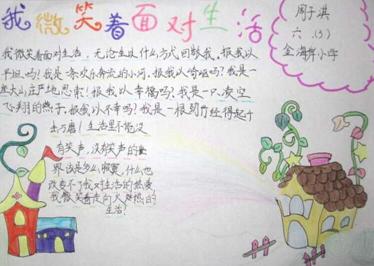 我微笑着面对生活
周子淇
六（5）
金海岸小学
我微笑着面对生活，无论生活以什么方式回敬我。报我以
平坦吗？我是一条欢乐奔流的小河。报我以崎岖吗？我是一
座大山庄严地思索！报我以幸福吗？我是一只凌空
飞翔的燕子。报我以不幸吗？我是一根劲竹经得起千
击万磨！生活里不能没
有笑声，没有笑声的世
界该是多么寂寞。什么也
改变不了我对生活的热爱，
我微笑着走向火热的
生活！